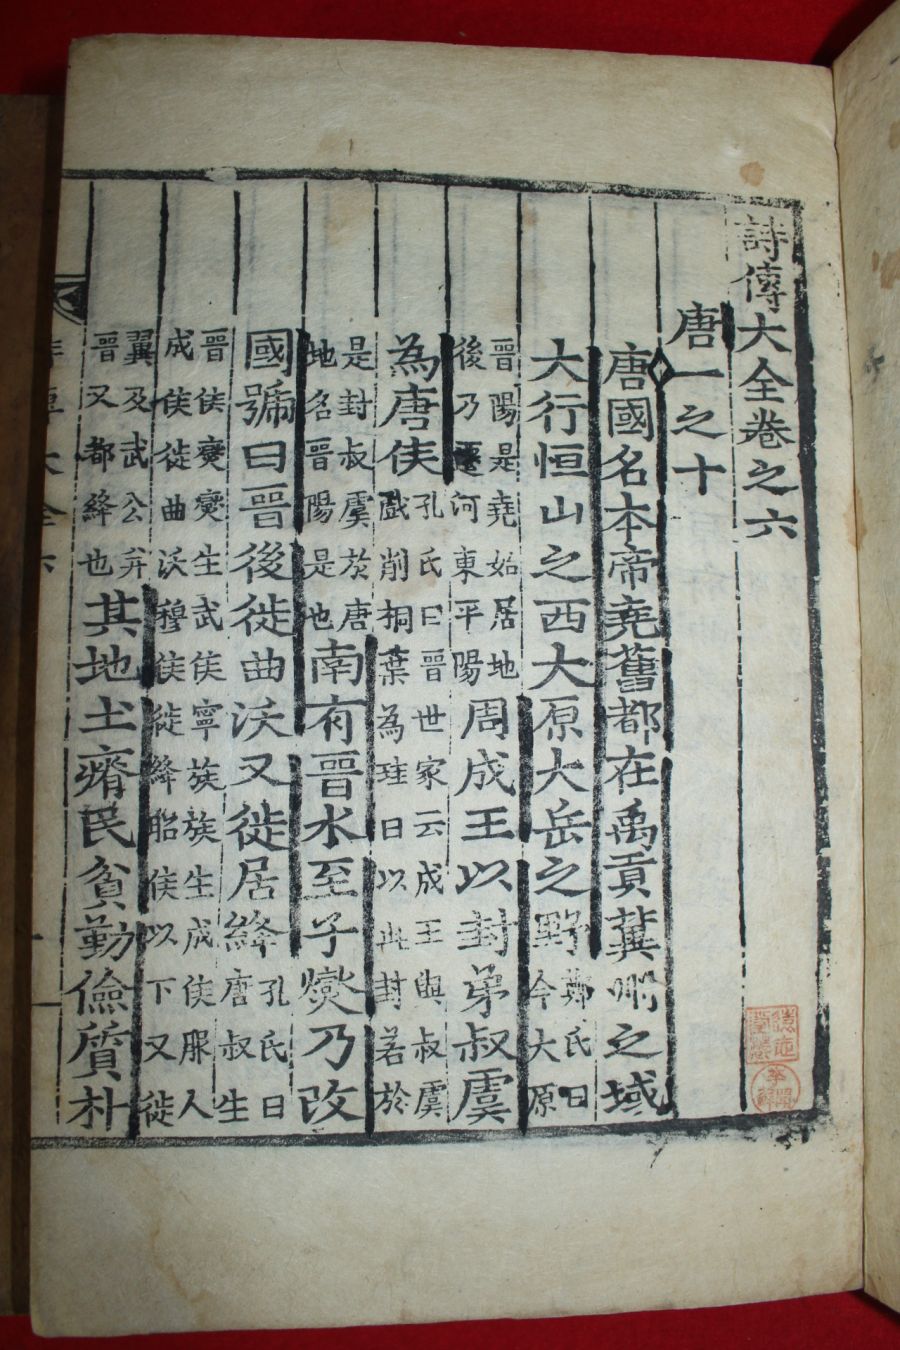 詩傳大全卷之六
唐一之十
唐國名本帝堯舊都在禹貢冀州之域
大行恒山之西大原大岳之野鄭氏曰今大原
晉陽是堯始居地後乃遷河東平陽周成王以封弟叔虞
為唐侯孔氏曰晉世家云成王與叔虞戲削桐葉為珪曰以此封若於
是封叔虞於唐地名晉陽是也南有晉水至子燮乃改
國號曰晉後徙曲沃又徙居絳孔氏曰唐叔生
晉侯燮燮生武侯寧族族生成侯服人成侯徙曲沃穆侯徙絳昭侯以下又徙
翼及武公并晉又都絳也其地土瘠民貧勤儉質朴